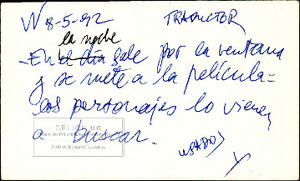 V 8-5-92 TRADUCTOR
la noche
En el día sale por la ventana
y se mete a la película=
Los personajes lo vienen
a buscar.
USADO